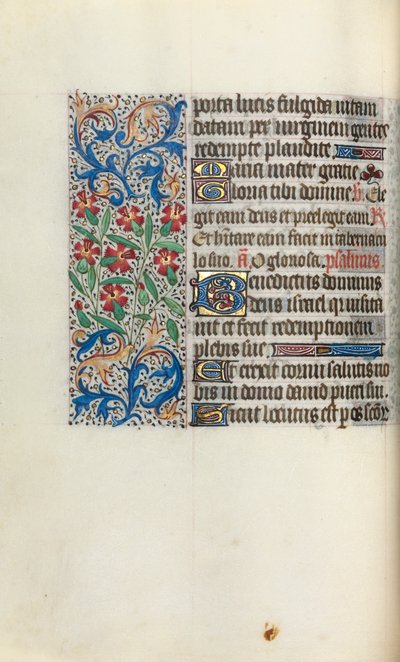 porta lucis fulgida uitam
datam per uirginem gentes
redempte plaudite
Maria mater gratie
Gloria tibi domine. V. Ele
git eam deus et preelegit eam R
Et habitare eam facit in tabernacu
lo suo. A. O gloriosa. psalmus
Benedictus dominus
deus israel qr uisita
uit et fecit redemptionem
plebis sue
Et erexit cornu salutis no
bis in domo dauid pueri sui.
Sicut locutus est per os scor